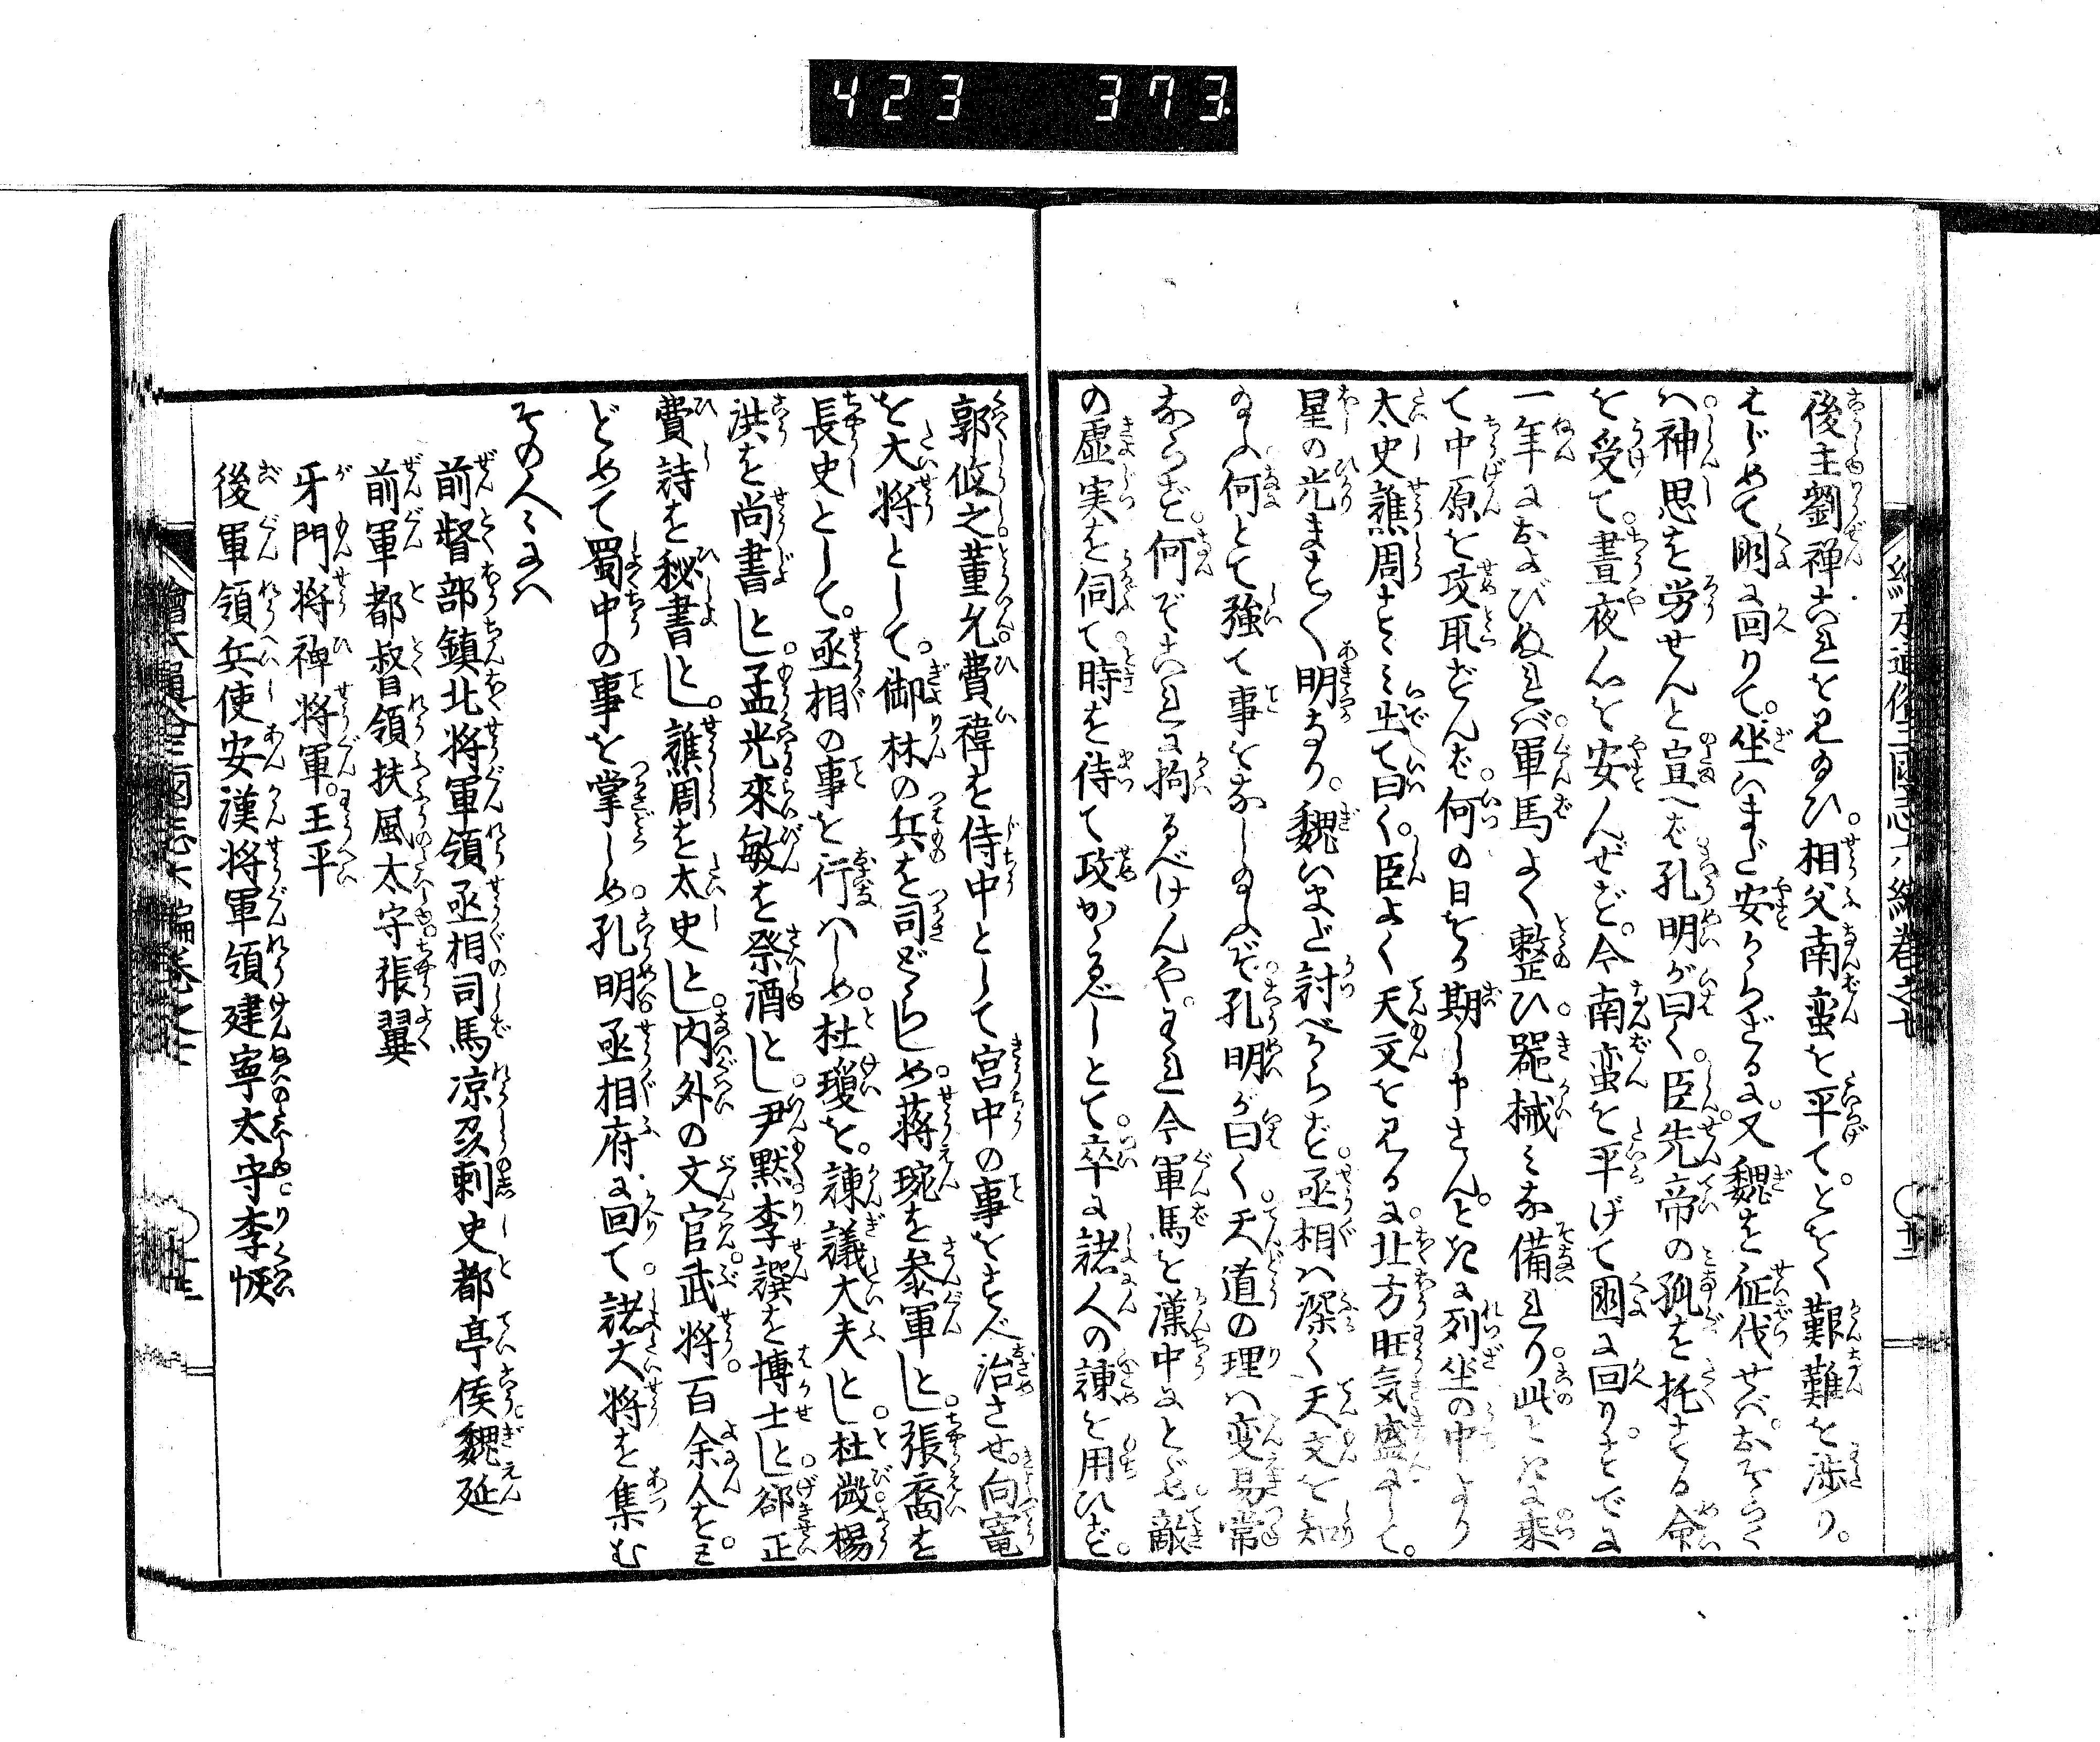 423 373
後主劉禅これを見給ひ。相父南蛮を平て。とほく艱難を渉り。
はじめて国に回りて。坐いまだ安からざるに。又魏を征伐せば。おそらく
ハ神思を労せんと宣へば孔明が曰く。臣先帝の孤を托するの命
を受て。晝夜心を安んぜず。今南蛮を平げて国に回り。すでに
一年におよびぬれバ。軍馬よく整ひ。器械ミな備れり。此ときに乗
て中原を攻取ずんば。何の日をか期し申さん。ときに列坐の中より
太史譙周すゝミ出て曰く。臣よく天文を見るに。北方旺気盛にして。
星の光ます〳〵明なり。魏いまだ討べからず。丞相ハ深く天文を知
給ふ。何とて強て事をなし給ふぞ。孔明が曰く。天道の理ハ変易常
ならず。何ぞこれに拘るべけんや。われ今軍馬を漢中にとゞめ。敵
の虚実を伺て。時を待て攻かゝるべしとて。卒に諸人の諌を用ひず。
郭攸之董允。費禕を侍中として宮中の事をすべ治させ。向寵
を大将として。御林の兵を司どらしめ。蒋琬を参軍とし。張裔を
長史として。丞相の事を行ハしめ。杜瓊を。諌議大夫とし。杜微楊
洪を尚書とし。孟光來敏を祭酒とし。尹黙李譔を博士とし。郤正
費詩を秘書とし。譙周を太史とし。内外の文官。武将。百余人を。
どめて蜀中の事を掌しめ。孔明丞相府に回て。諸大将を集む
その人〻にハ
前督部鎮北将軍領丞相司馬凉州刺史都亭侯魏延
前軍都督領扶風太守張翼
牙門将裨将軍。王平
後軍領兵使安漢将軍領建寧太守李恢